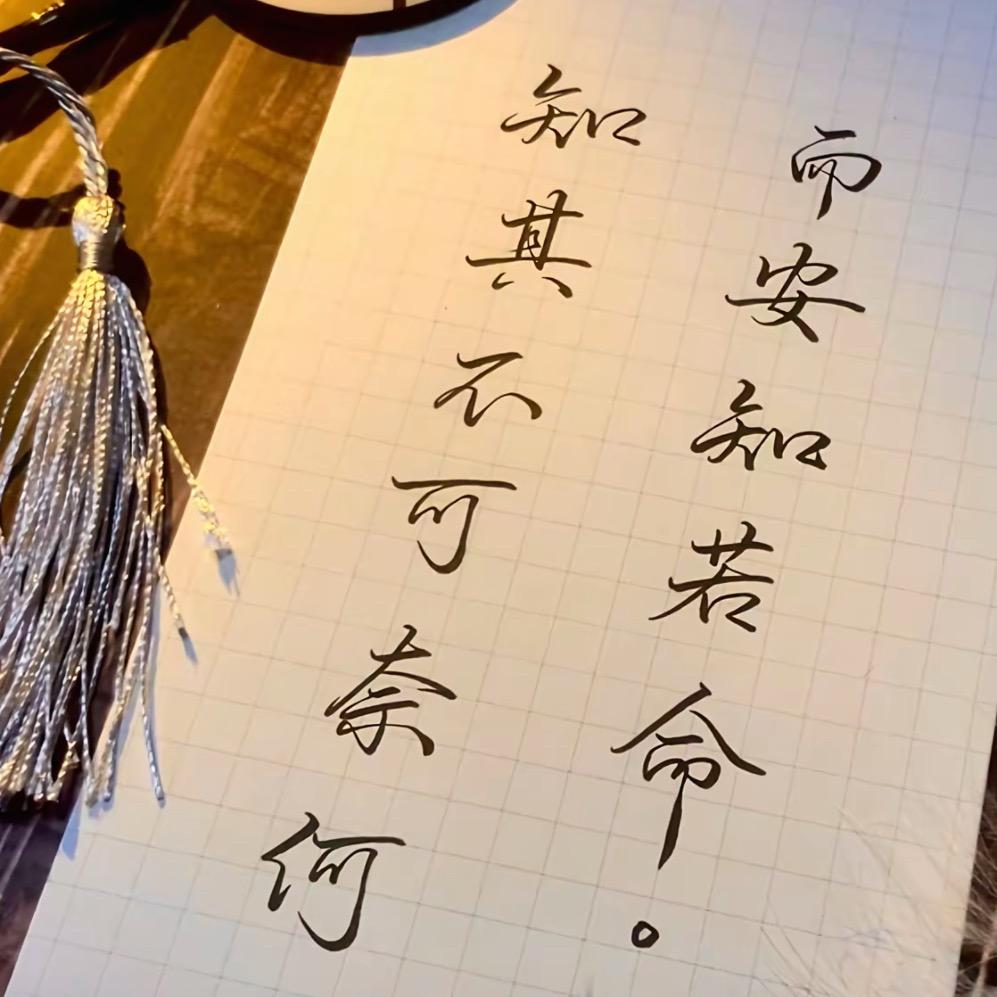 知其不可奈何
而安知若命。